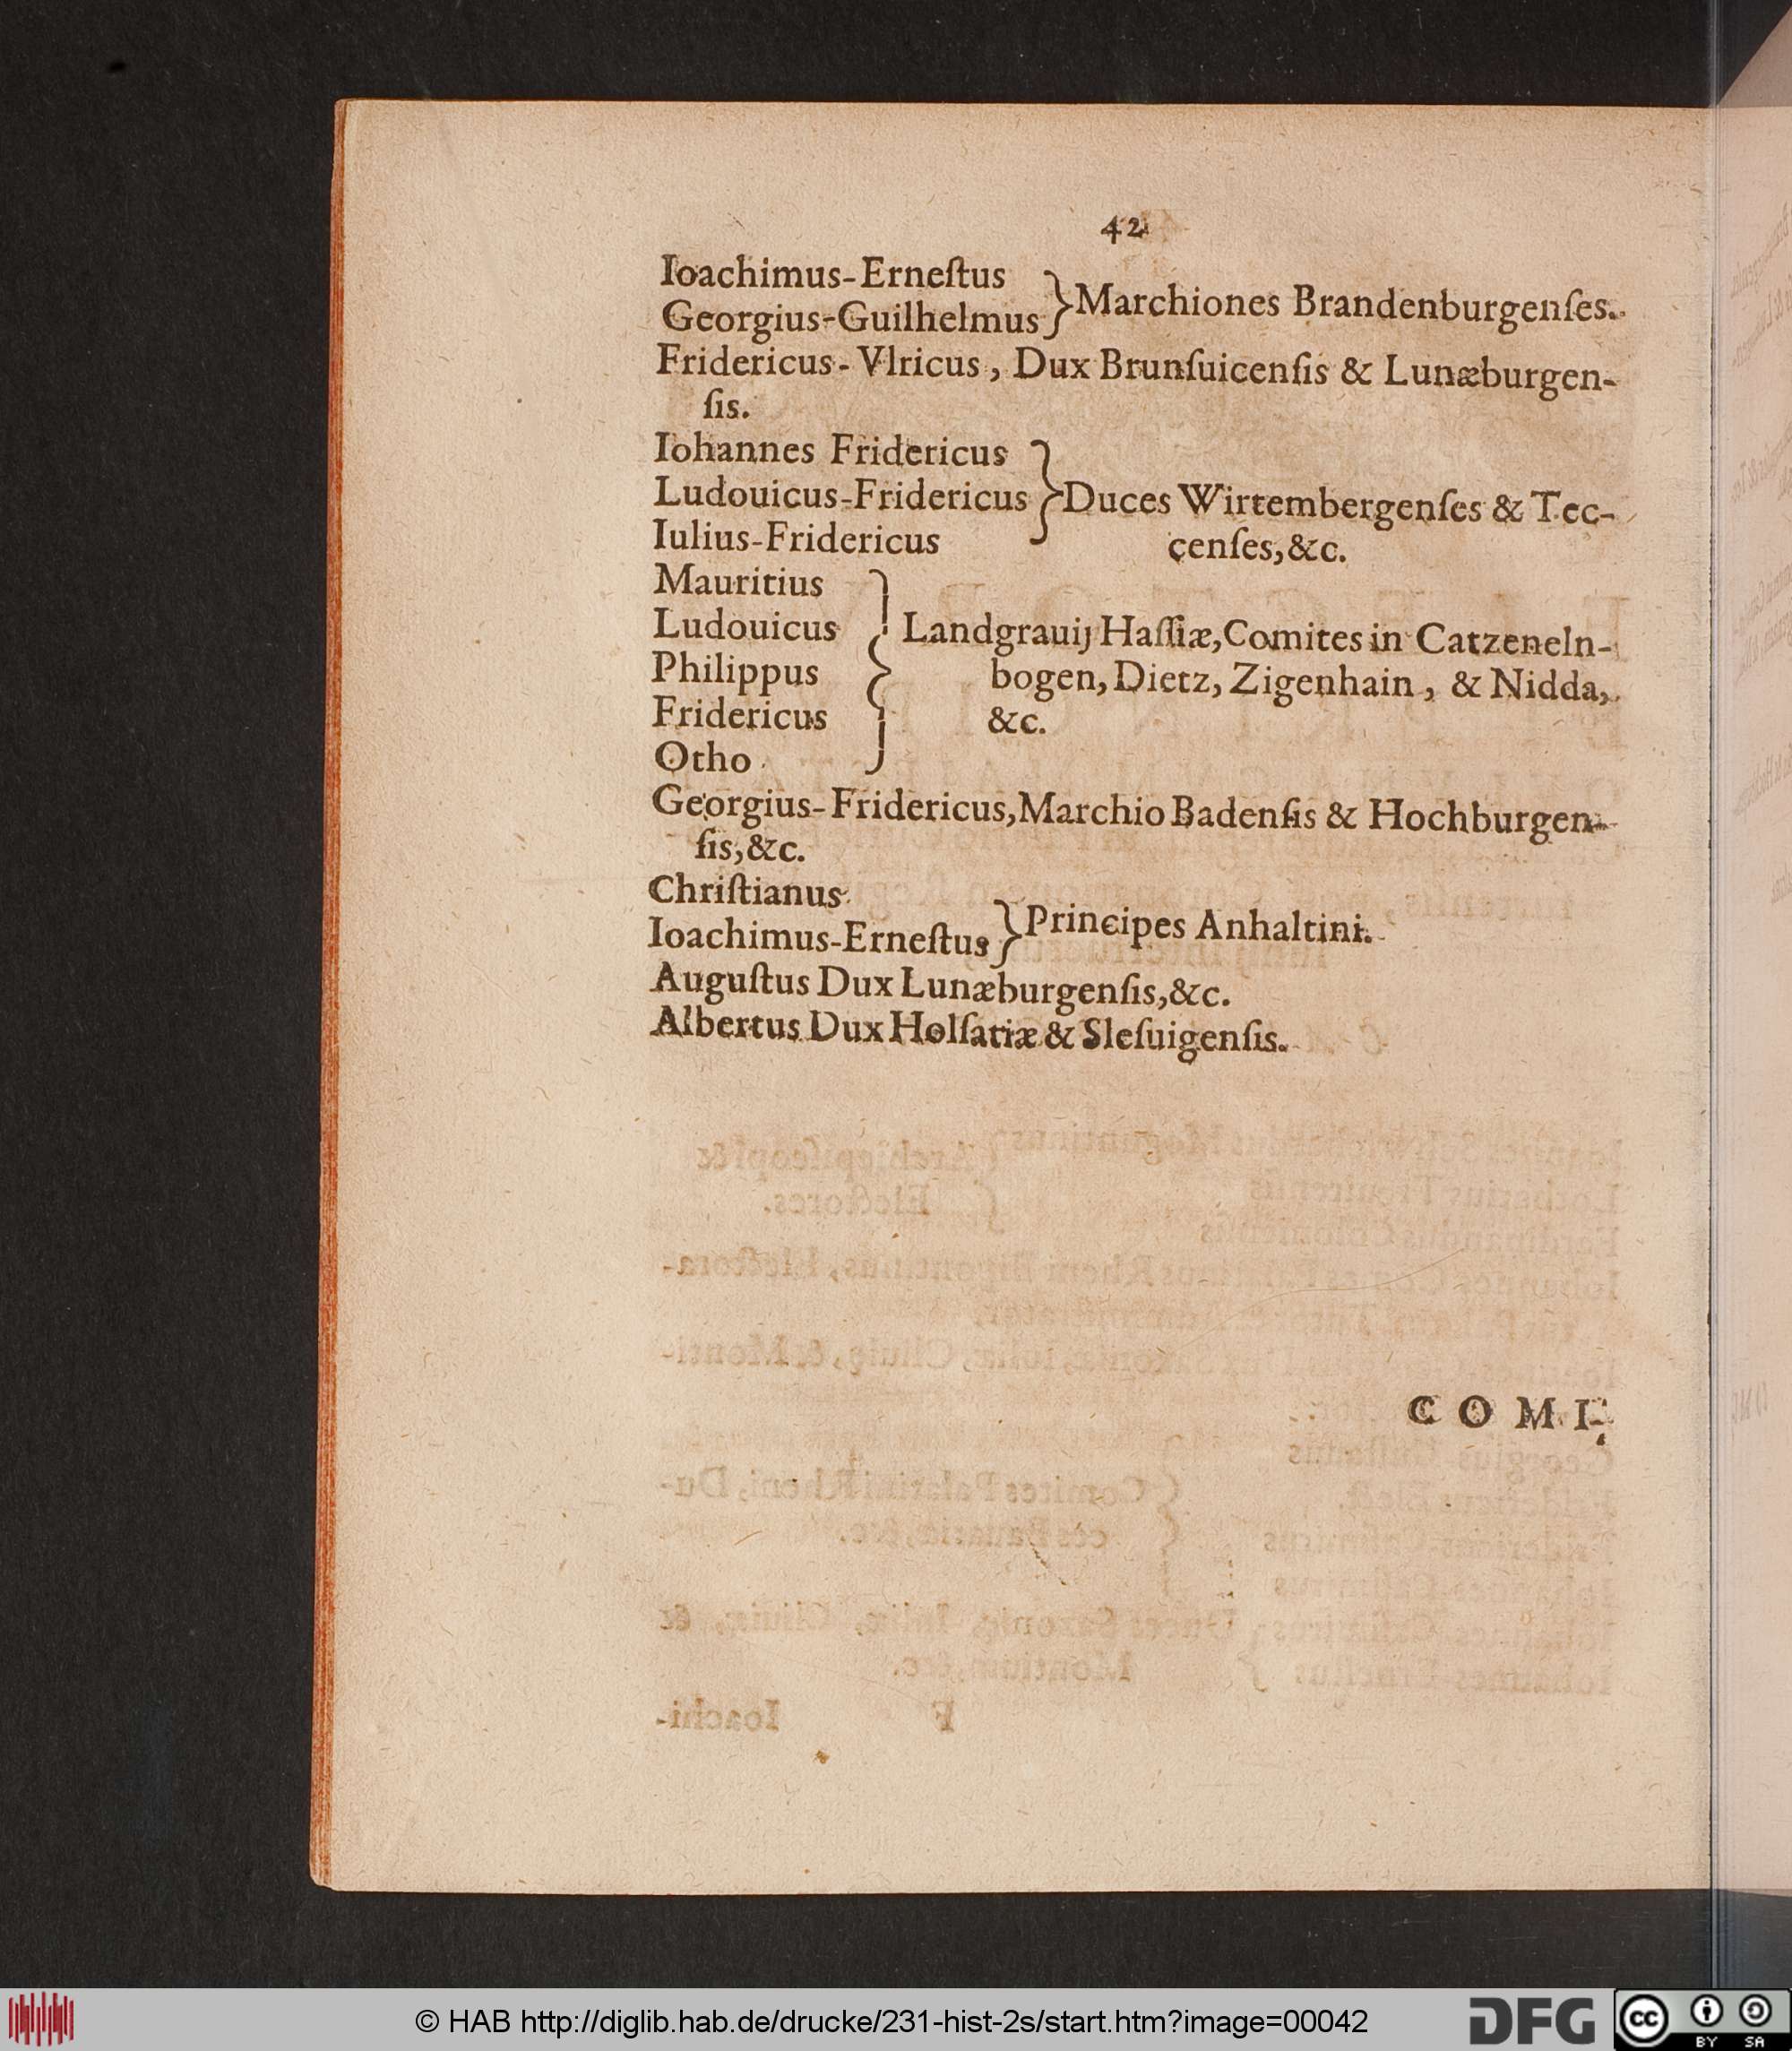 42
Ioachimus-Erneſtus
Georgius-Guilhelmus } Marchiones Brandenburgenſes.
Fridericus-Vlricus, Dux Brunſuicenſis & Lunæburgen-
ſis.
Iohannes Fridericus
Ludouicus-Fridericus } Duces Wirtembergenſes & Tec-
Iulius-Fridericus cenſes, &c.
Mauritius
Ludouicus } Landgrauij Haſſiæ, Comites in Catzeneln-
Philippus bogen, Dietz, Zigenhain, & Nidda,
Fridericus &c.
Otho
Georgius-Fridericus, Marchio Badenſis & Hochburgen-
ſis, &c.
Chriſtianus
Ioachimus-Erneſtus } Principes Anhaltini.
Auguſtus Dux Lunæburgenſis, &c.
Albertus Dux Holſatiæ & Sleſuigenſis.
COMI-
© HAB http://diglib.hab.de/drucke/231-hist-2s/start.htm?image=00042
DFG
cc
BY SA